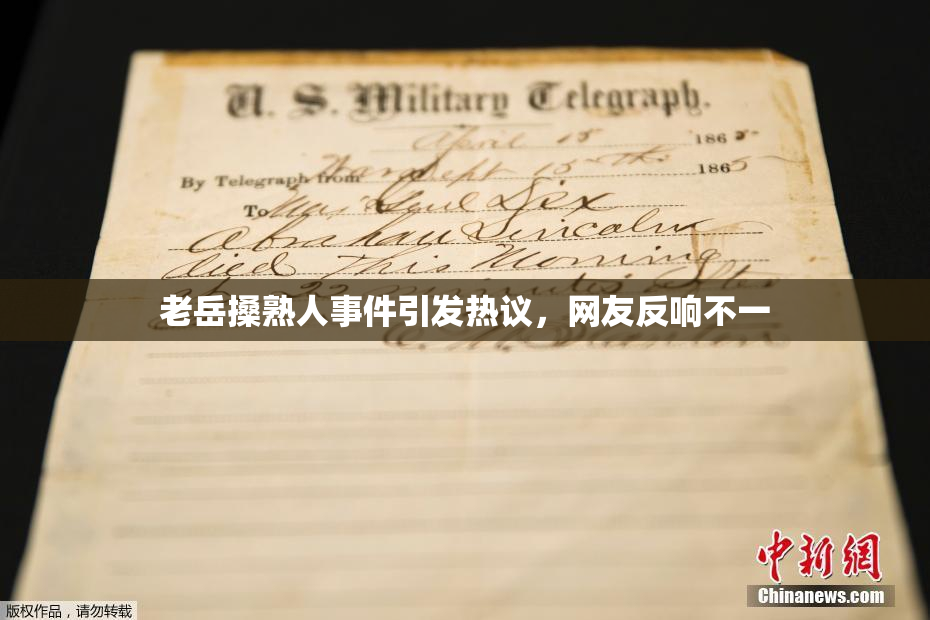 U. S. Military Telegraph.
April 15 1865
By Telegraph from War Dept 15th 1865
To Maj Genl Dix
Abraham Lincoln
died This Morning
at 22 minutes after
老岳搡熟人事件引发热议，网友反响不一
E. M. Stanton
中新網
Chinanews.com
版权作品，请勿转载